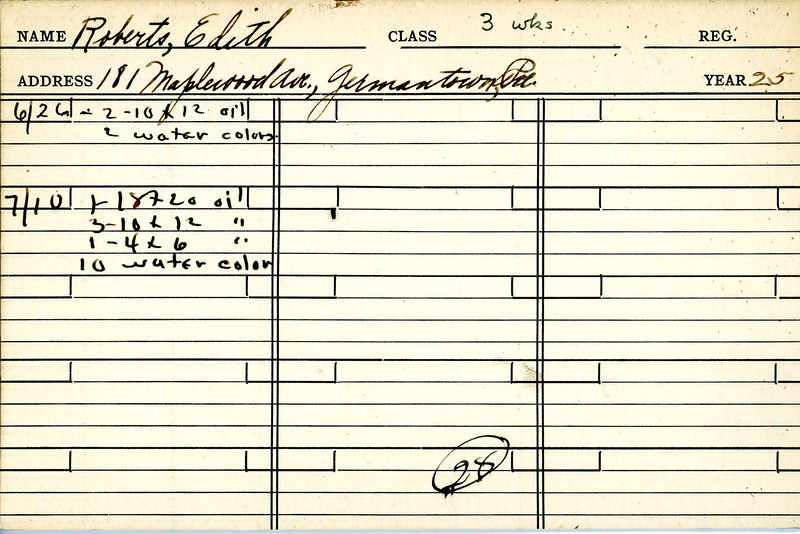 NAME Roberts, Edith CLASS 3 wks. REG.
ADDRESS 181 Maplewood Ave., Germantown, Pa. YEAR 25
6/26 - 2-10 x 12 oil
2 water colors
7/10 1-18x20 oil
3-10 x 12 "
1-4 x 6 "
10 water color
28